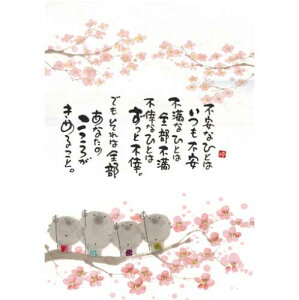 不安なひとは
いつも不安
不満なひとは
全部不満
不倖なひとは
ずっと不倖。
でもそれは全部
あなたの
こころが
きめてること。